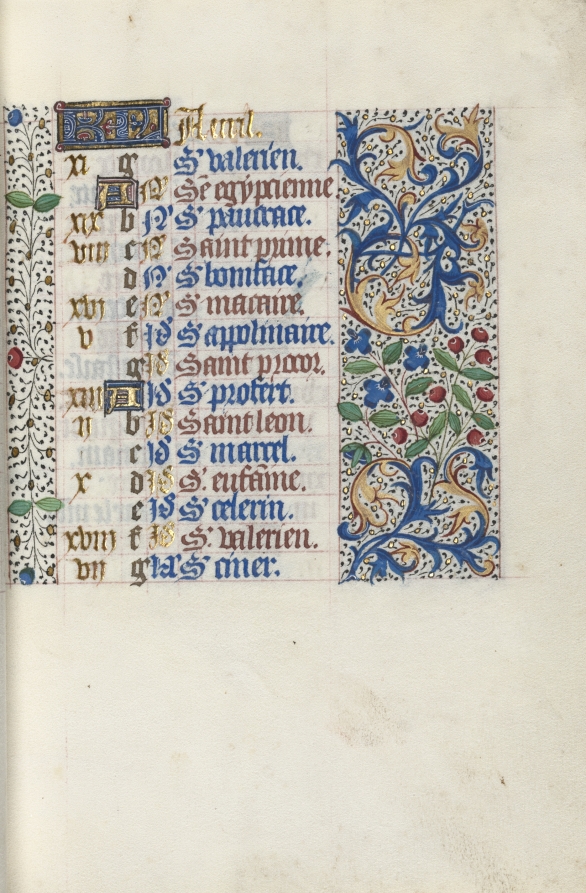 KL Auril.
xi g S' valerien.
A N' Se egypcienne
xix b N' S' pancrace.
viii c N' Saint prime.
d N' S' boniface.
xvi e N' S' macaire.
v f id S' appolinaire.
g id Saint procor.
xiii A id S' profert.
ii b id Saint leon.
c id S' marcel.
x d id S' eufame.
e id S' celerin.
xviii f id S' valerien.
vii g kl'a S' ciner.